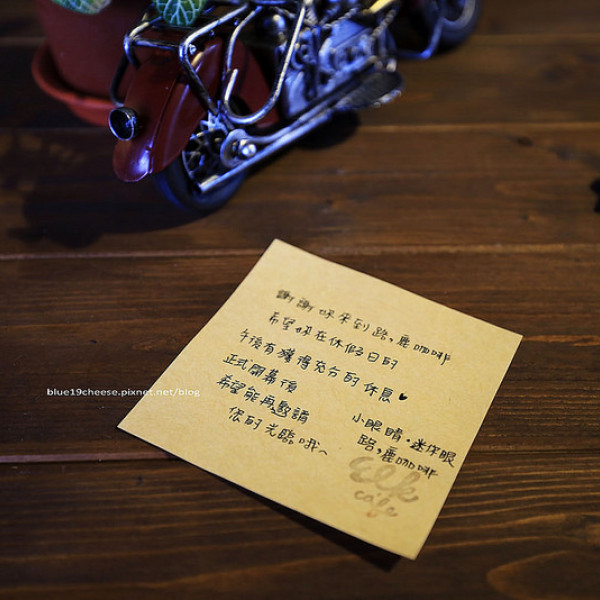 謝謝妳來到路,鹿咖啡
希望妳在休假日的
午後有獲得充分的休息♥
正式開幕後
希望能再邀請
您的光臨哦~
小眼睛・迷你眼
路,鹿咖啡
elk
cafe
blue19cheese.pixnet.net/blog